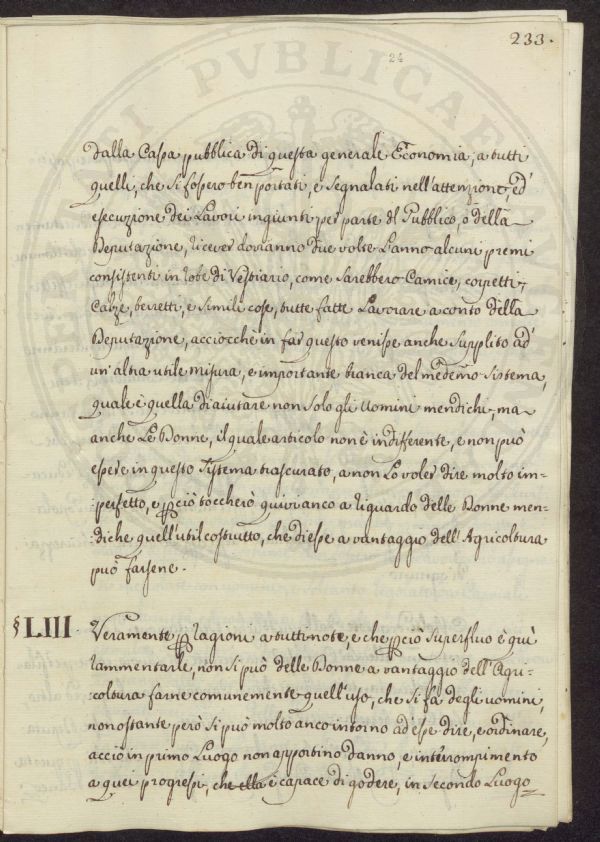 233.
24
dalla Cassa pubblica di questa generale Economia, a tutti
quelli, che si fossero ben portati, e segnalati nell'attenzione, ed
esecuzione dei Lavori ingiunti per parte del Pubblico, o della
Deputazione, ricever dovranno due volte L'anno alcuni premi
consistenti in robe di Vestiario, come sarebbero Camice, corpetti,
Calze, berretti, e simili cose, tutte fatte Lavorare a conto della
Deputazione, acciocchè in far questo venisse anche supplito ad
un'altra utile misura, e importante branca del medemo Sistema,
quale è quella di aiutare non solo gli Uomini mendichi, ma
anche Le Donne, il quale articolo non è indifferente, e non può
essere in questo Sistema trascurato, a non Lo voler dire molto im=
=perfetto, e perciò toccherò quivi anco a riguardo delle Donne men=
=diche quell'util costrutto, che di esse a vantaggio dell'Agricoltura
può farsene.
§ LIII Veramente per ragioni a tutti note, e che perciò superfluo è quì
rammentarle, non si può delle Donne a vantaggio dell'Agri=
=coltura farne comunemente quell'uso, che si fa degli uomini,
nonostante però si può molto anco intorno ad esse dire, e ordinare,
acciò in primo Luogo non apportino danno, e interrompimento
a quei progressi, che ella è capace di godere, in secondo Luogo